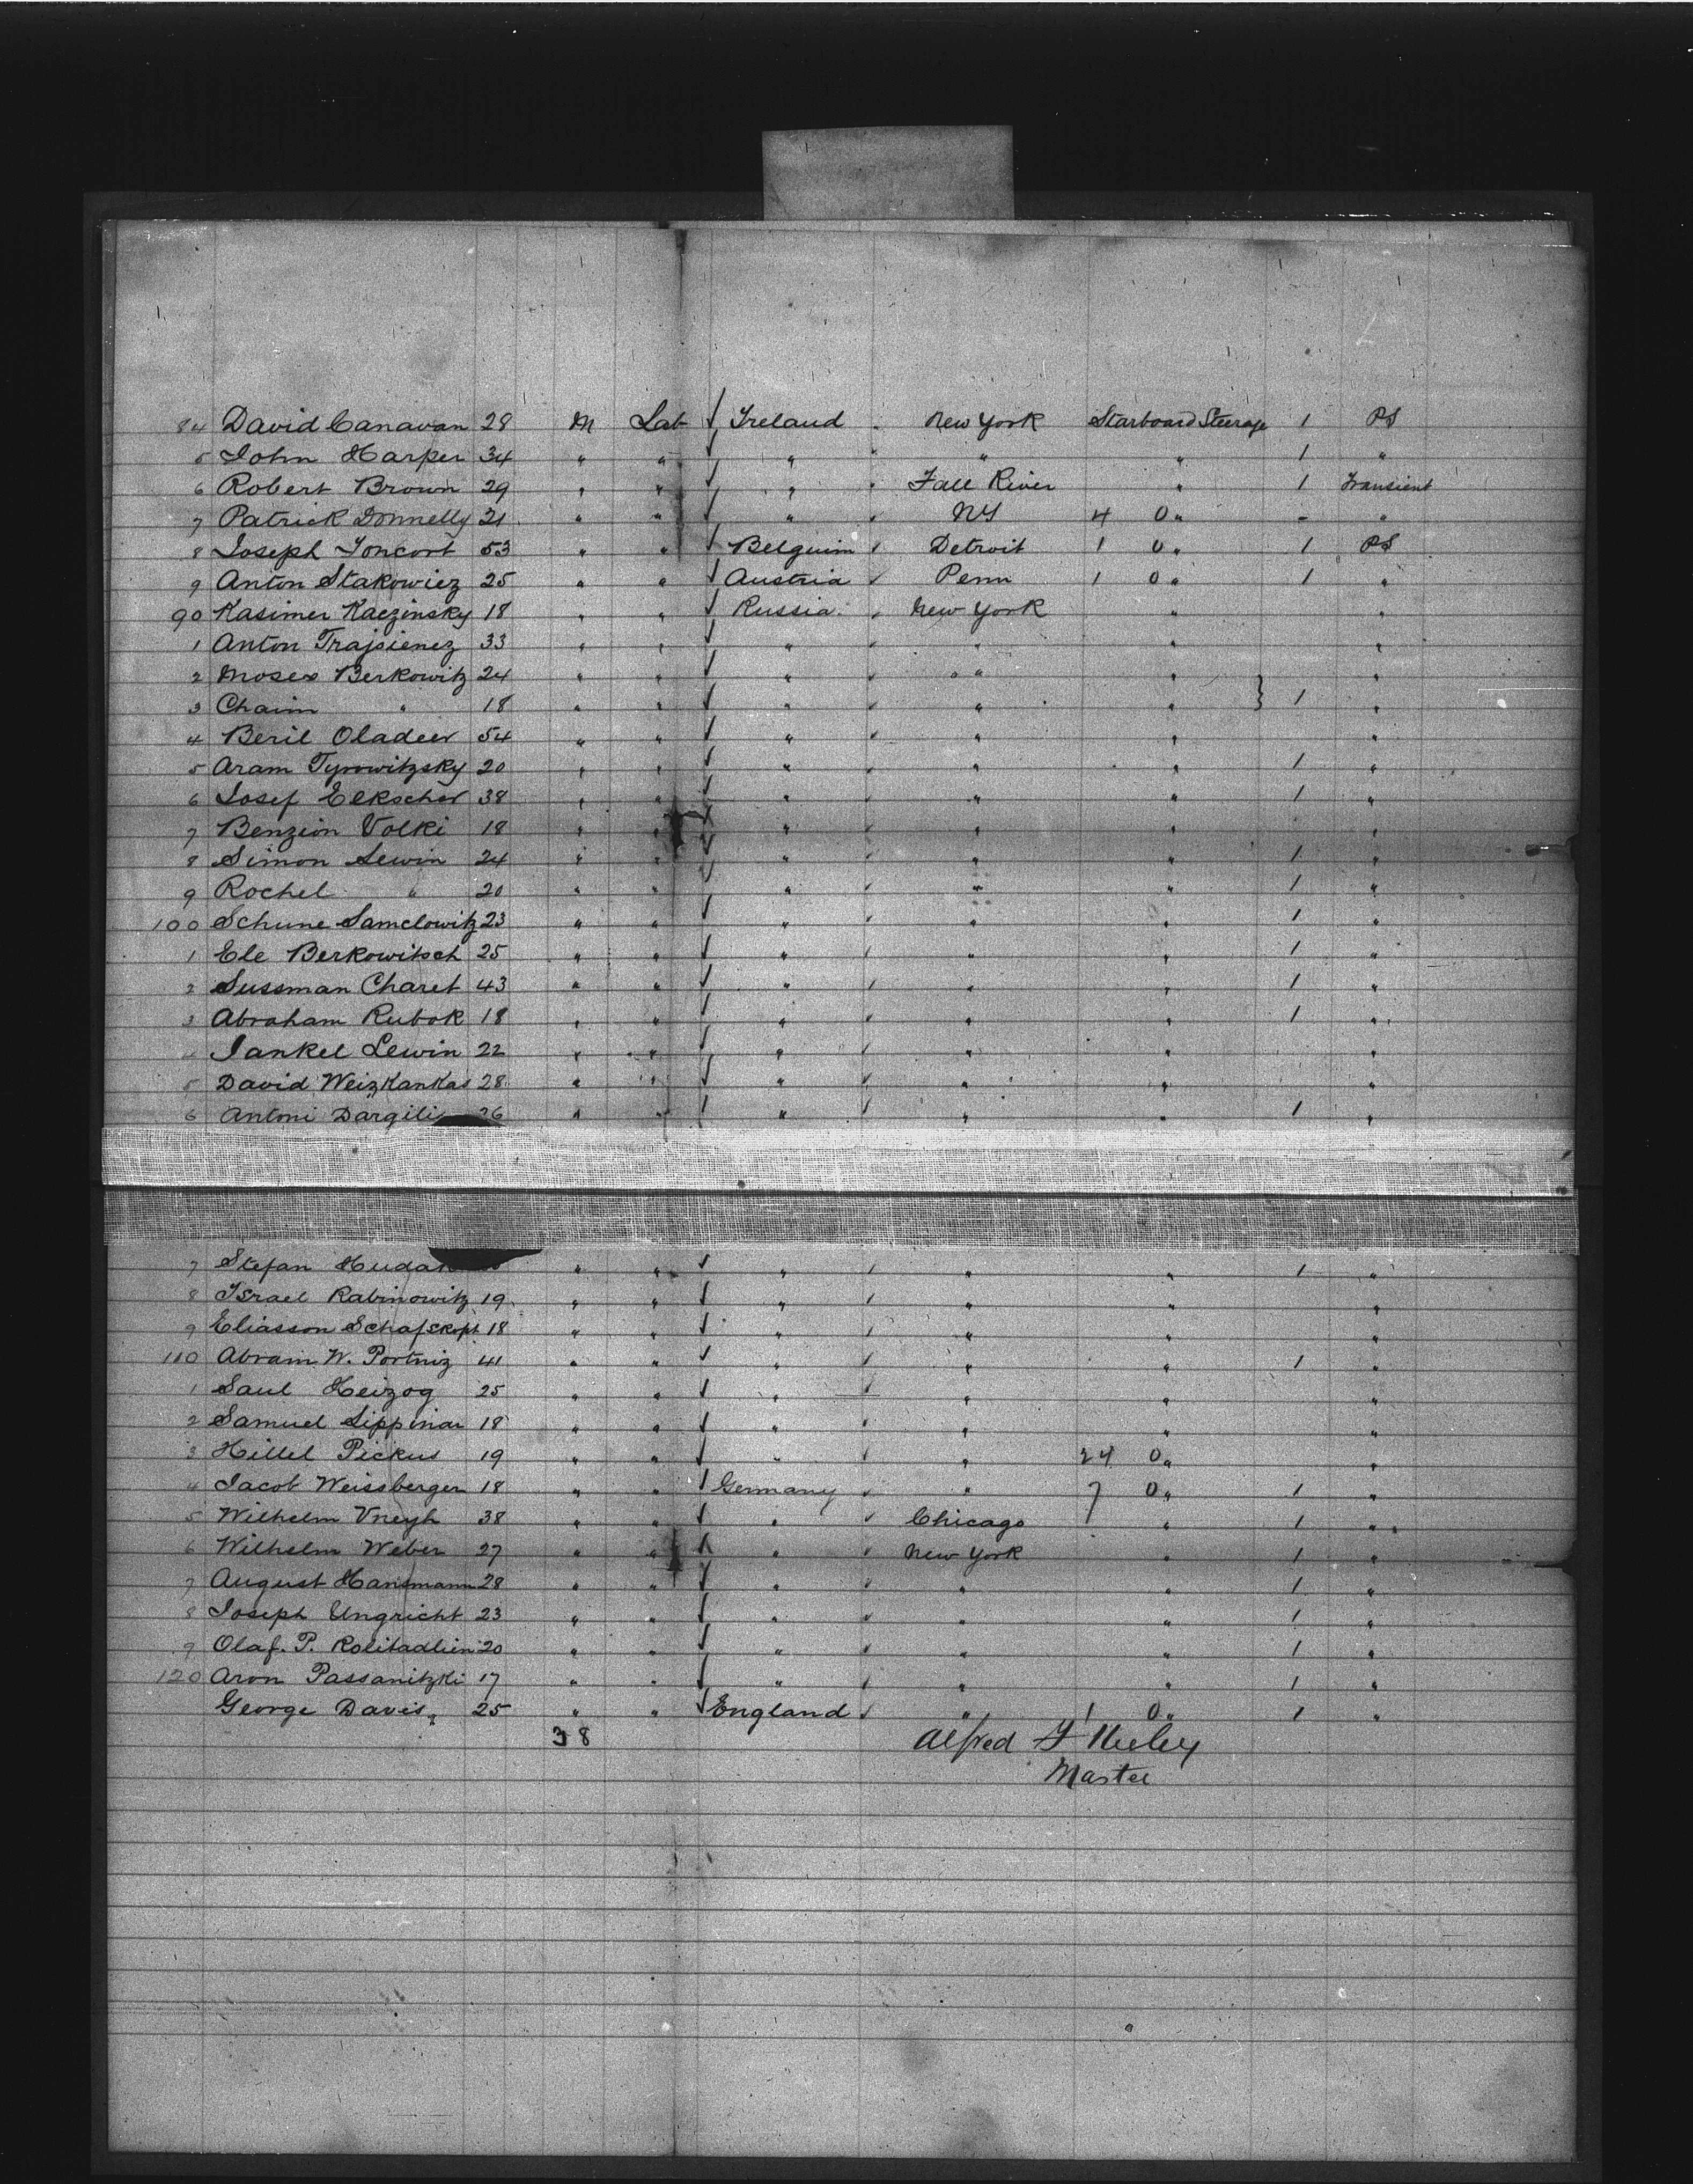 84 David Canavan 28 M Lab Ireland " New York Starboard Steerage 1 PS
5 John Harper 34 " " " " " " 1 "
6 Robert Brown 29 " " " " Fall River " 1 Transient
7 Patrick Donnelly 21 " " " " NY 4 0 " - "
8 Joseph Joncort 53 " " Belguim " Detroit 1 0 " 1 PS
9 Anton Stakowiez 25 " " Austria " Penn 1 0 " 1 "
90 Kasimer Kaezinsky 18 " " Russia " New York " "
1 Anton Trajsienez 33 " " " " " " "
2 Moses Berkowitz 24 " " " " " " "
3 Chaim " 18 " " " " " " } 1 "
4 Beril Oladeer 54 " " " " " " "
5 Aram Tyrowitzsky 20 " " " " " " 1 "
6 Josef Elkscher 38 " " " " " " 1 "
7 Benzion Volki 18 " " " " " " "
8 Simon Lewin 24 " " " " " " 1 "
9 Rochel " 20 " " " " " " 1 "
100 Schune Samelowitz 23 " " " " " 1 "
1 Ele Berkowitsch 25 " " " " " " 1 "
2 Sussman Charet 43 " " " " " " 1 "
3 Abraham Rubok 18 " " " " " " 1 "
4 Jankel Lewin 22 " " " " " " "
5 David Weizkankas 28 " " " " " " "
6 Antoni Dargili 26 " " " " " " 1 "
7 Stefan Hudak " " " " " " 1 "
8 Israel Rabinowitz 19 " " " " " " "
9 Eliasson Schafskopt 18 " " " " " " "
110 Abram W. Portniz 41 " " " " " " 1 "
1 Saul Heizog 25 " " " " " " "
2 Samuel Lippman 18 " " " " " " "
3 Hillel Pickus 19 " " " " 24 0 " "
4 Jacob Weissberger 18 " " Germany " " 7 0 " 1 "
5 Wilhelm 38 " " " " Chicago " 1 "
6 Wilhelm Weber 27 " " " " New York " 1 "
7 August Hansmann 28 " " " " " " 1 "
8 Joseph Ungricht 23 " " " " " " 1 "
9 Olaf. P. 20 " " " " " " 1 "
120 Aron Passanitzki 17 " " " " " 1 "
George Davis 25 " " England " " 1 0 " 1 "
38
Alfred
Master